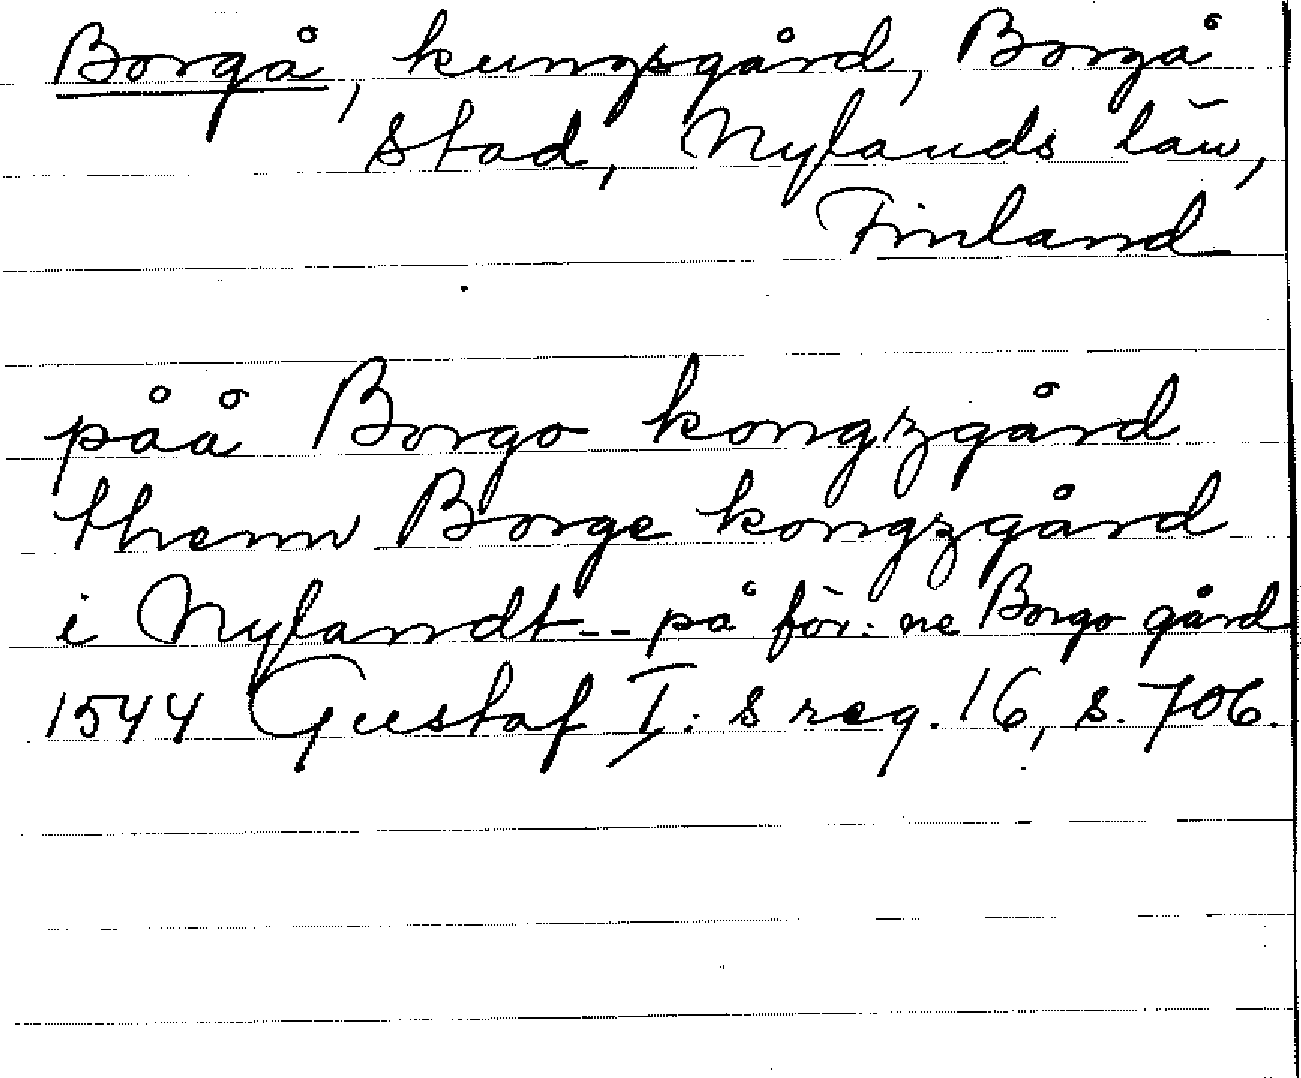 Borgå, kungsgård, Borgå
stad, Nylands län,
Finland
påå Borgo kongzgård
thenn Borge kongzgård
i Nylandt -- på för: ne Borgo gård
1544 Gustaf I:s reg. 16, s. 706.